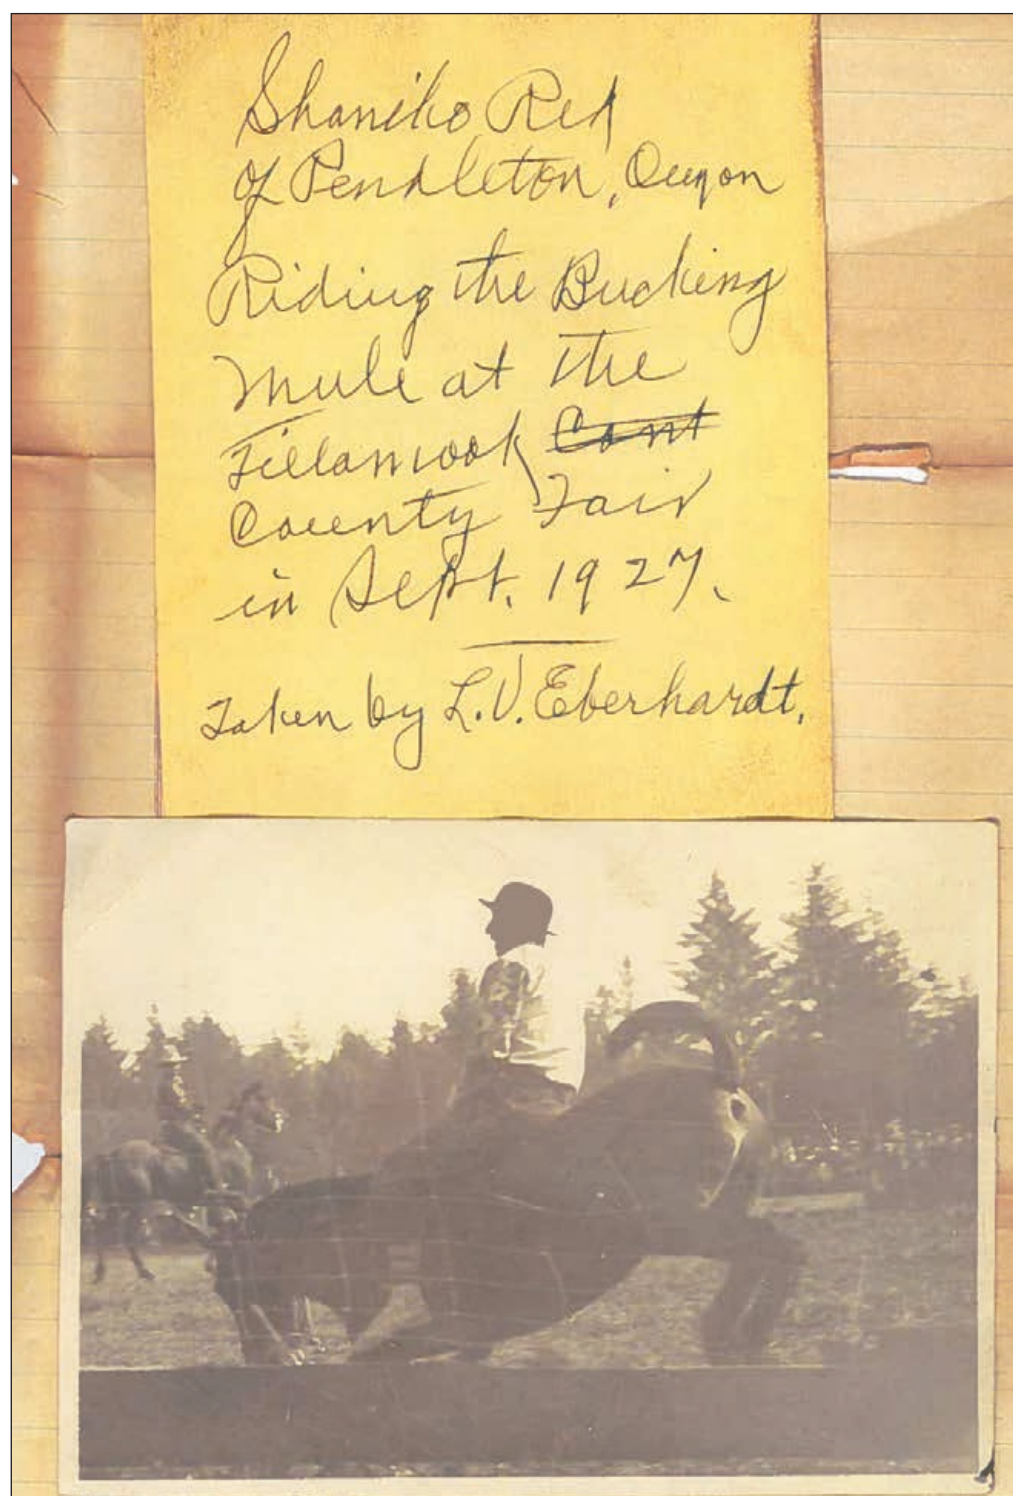 Shaniko Red
of Pendleton, Oregon
Riding the Bucking
Mule at the
Tillamook Cont
County Fair
in Sept. 1927.
Taken by L.V. Eberhardt.